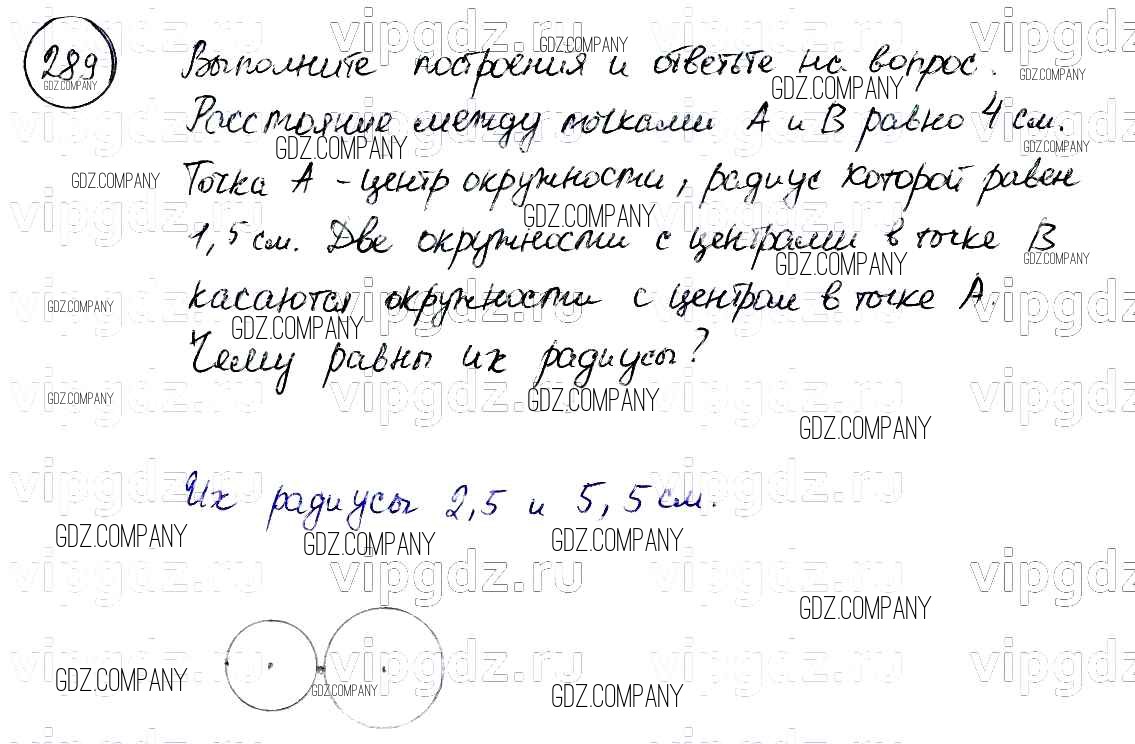 289
Выполните построения и ответьте на вопрос.
Расстояние между точками А и В равно 4 см.
Точка А - центр окружности, радиус которой равен
1,5 см. Две окружности с центрами в точке В
касаются окружности с центром в точке А.
Чему равны их радиусы?
Их радиусы 2,5 и 5,5 см.
GDZ.COMPANY
vipgdz.ru